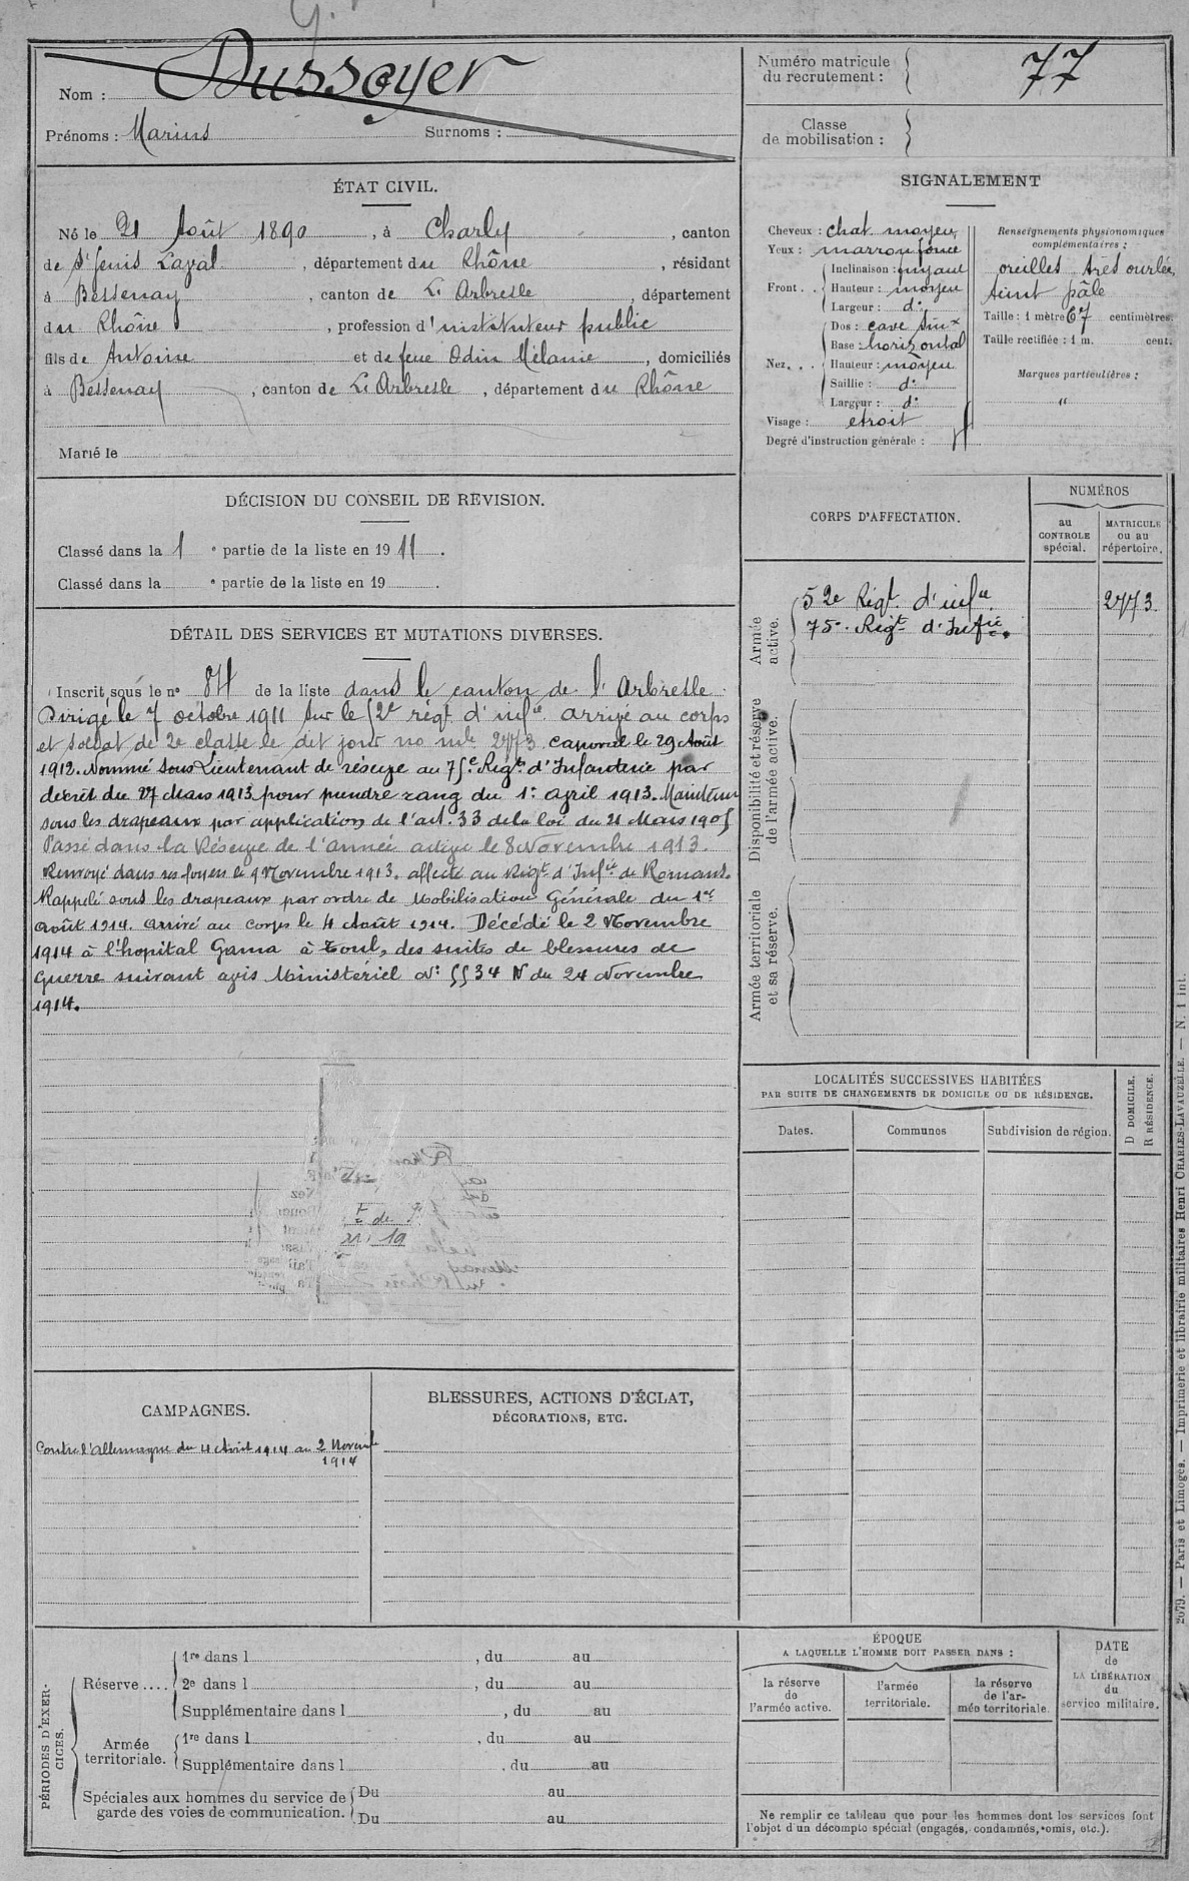 Nom : Dussoyer
Prénoms : Marius Surnoms :
Numéro matricule du recrutement : 77
Classe de mobilisation :
ÉTAT CIVIL.
Né le 21 Août 1890, à Charly, canton
de St Genis Laval, département du Rhône, résidant
à Bessenay, canton de L'Arbresle, département
du Rhône, profession d'instituteur public
fils de Antoine et de feue Odin Mélanie, domiciliés
à Bessenay, canton de L'Arbresle, département du Rhône
Marié le
SIGNALEMENT
Cheveux : chat. moyen
Yeux : marron foncé
Front . . Inclinaison : fuyant
Hauteur : moyen
Largeur : do
Nez. . . Dos : cave sinx
Base : horizontal
Hauteur : moyen
Saillie : do
Largeur : do
Visage : étroit
Degré d'instruction générale :
Renseignements physionomiques
complémentaires :
oreilles très ourlées
teint pâle
Taille : 1 mètre 67 centimètres.
Taille rectifiée : 1 m. cent.
Marques particulières :
"
DÉCISION DU CONSEIL DE REVISION.
Classé dans la 1 e partie de la liste en 1911.
Classé dans la e partie de la liste en 19 .
DÉTAIL DES SERVICES ET MUTATIONS DIVERSES.
Inscrit sous le no de la liste dans le canton de l'Arbresle.
Dirigé le 7 octobre 1911 sur le 52e régt d'infie arrivé au corps
et soldat de 2e classe le dit jour no mle 2773. caporal le 29 Août
1912. Nommé sous Lieutenant de réserve au 75e Régt d'Infanterie par
décret du 27 Mars 1913 pour prendre rang du 1er avril 1913. Maintenu
sous les drapeaux par application de l'art. 33 de la loi du 21 Mars 1905
Passé dans la Réserve de l'armée active le 8 Novembre 1913.
Renvoyé dans ses foyers le 9 Novembre 1913. affecté au Régt d'Infie de Romans.
Rappelé sous les drapeaux par ordre de Mobilisation Générale du 1er
Août 1914. Arrivé au corps le 4 Août 1914. Décédé le 2 Novembre
1914 à l'hopital Gama à Toul, des suites de blessures de
Guerre suivant avis Ministériel No 5534 N du 24 Novembre
1914.
CORPS D'AFFECTATION.
NUMÉROS
au CONTROLE spécial.
MATRICULE ou au répertoire.
Armée active.
52e Régt d'infie. 2773
75e Régt d'Infie.
Disponibilité et réserve de l'armée active.
Armée territoriale et sa réserve.
LOCALITÉS SUCCESSIVES HABITÉES
PAR SUITE DE CHANGEMENTS DE DOMICILE OU DE RÉSIDENCE.
Dates. Communes Subdivision de région.
D DOMICILE.
R RÉSIDENCE.
CAMPAGNES.
Contre l'Allemagne du 4 Août 1914 au 2 Novembre
1914
BLESSURES, ACTIONS D'ÉCLAT,
DÉCORATIONS, ETC.
PÉRIODES D'EXERCICES.
Réserve.... 1re dans l , du au
2e dans l , du au
Supplémentaire dans l , du au
Armée territoriale. 1re dans l , du au
Supplémentaire dans l , du au
Spéciales aux hommes du service de
garde des voies de communication. Du au
Du au
ÉPOQUE
A LAQUELLE L'HOMME DOIT PASSER DANS :
la réserve de l'armée active.
l'armée territoriale.
la réserve de l'armée territoriale.
DATE de LA LIBÉRATION du service militaire.
Ne remplir ce tableau que pour les hommes dont les services font
l'objet d'un décompte spécial (engagés, condamnés, omis, etc.).
2079. — Paris et Limoges. — Imprimerie et librairie militaires Henri CHARLES-LAVAUZELLE. — N. 1 int.